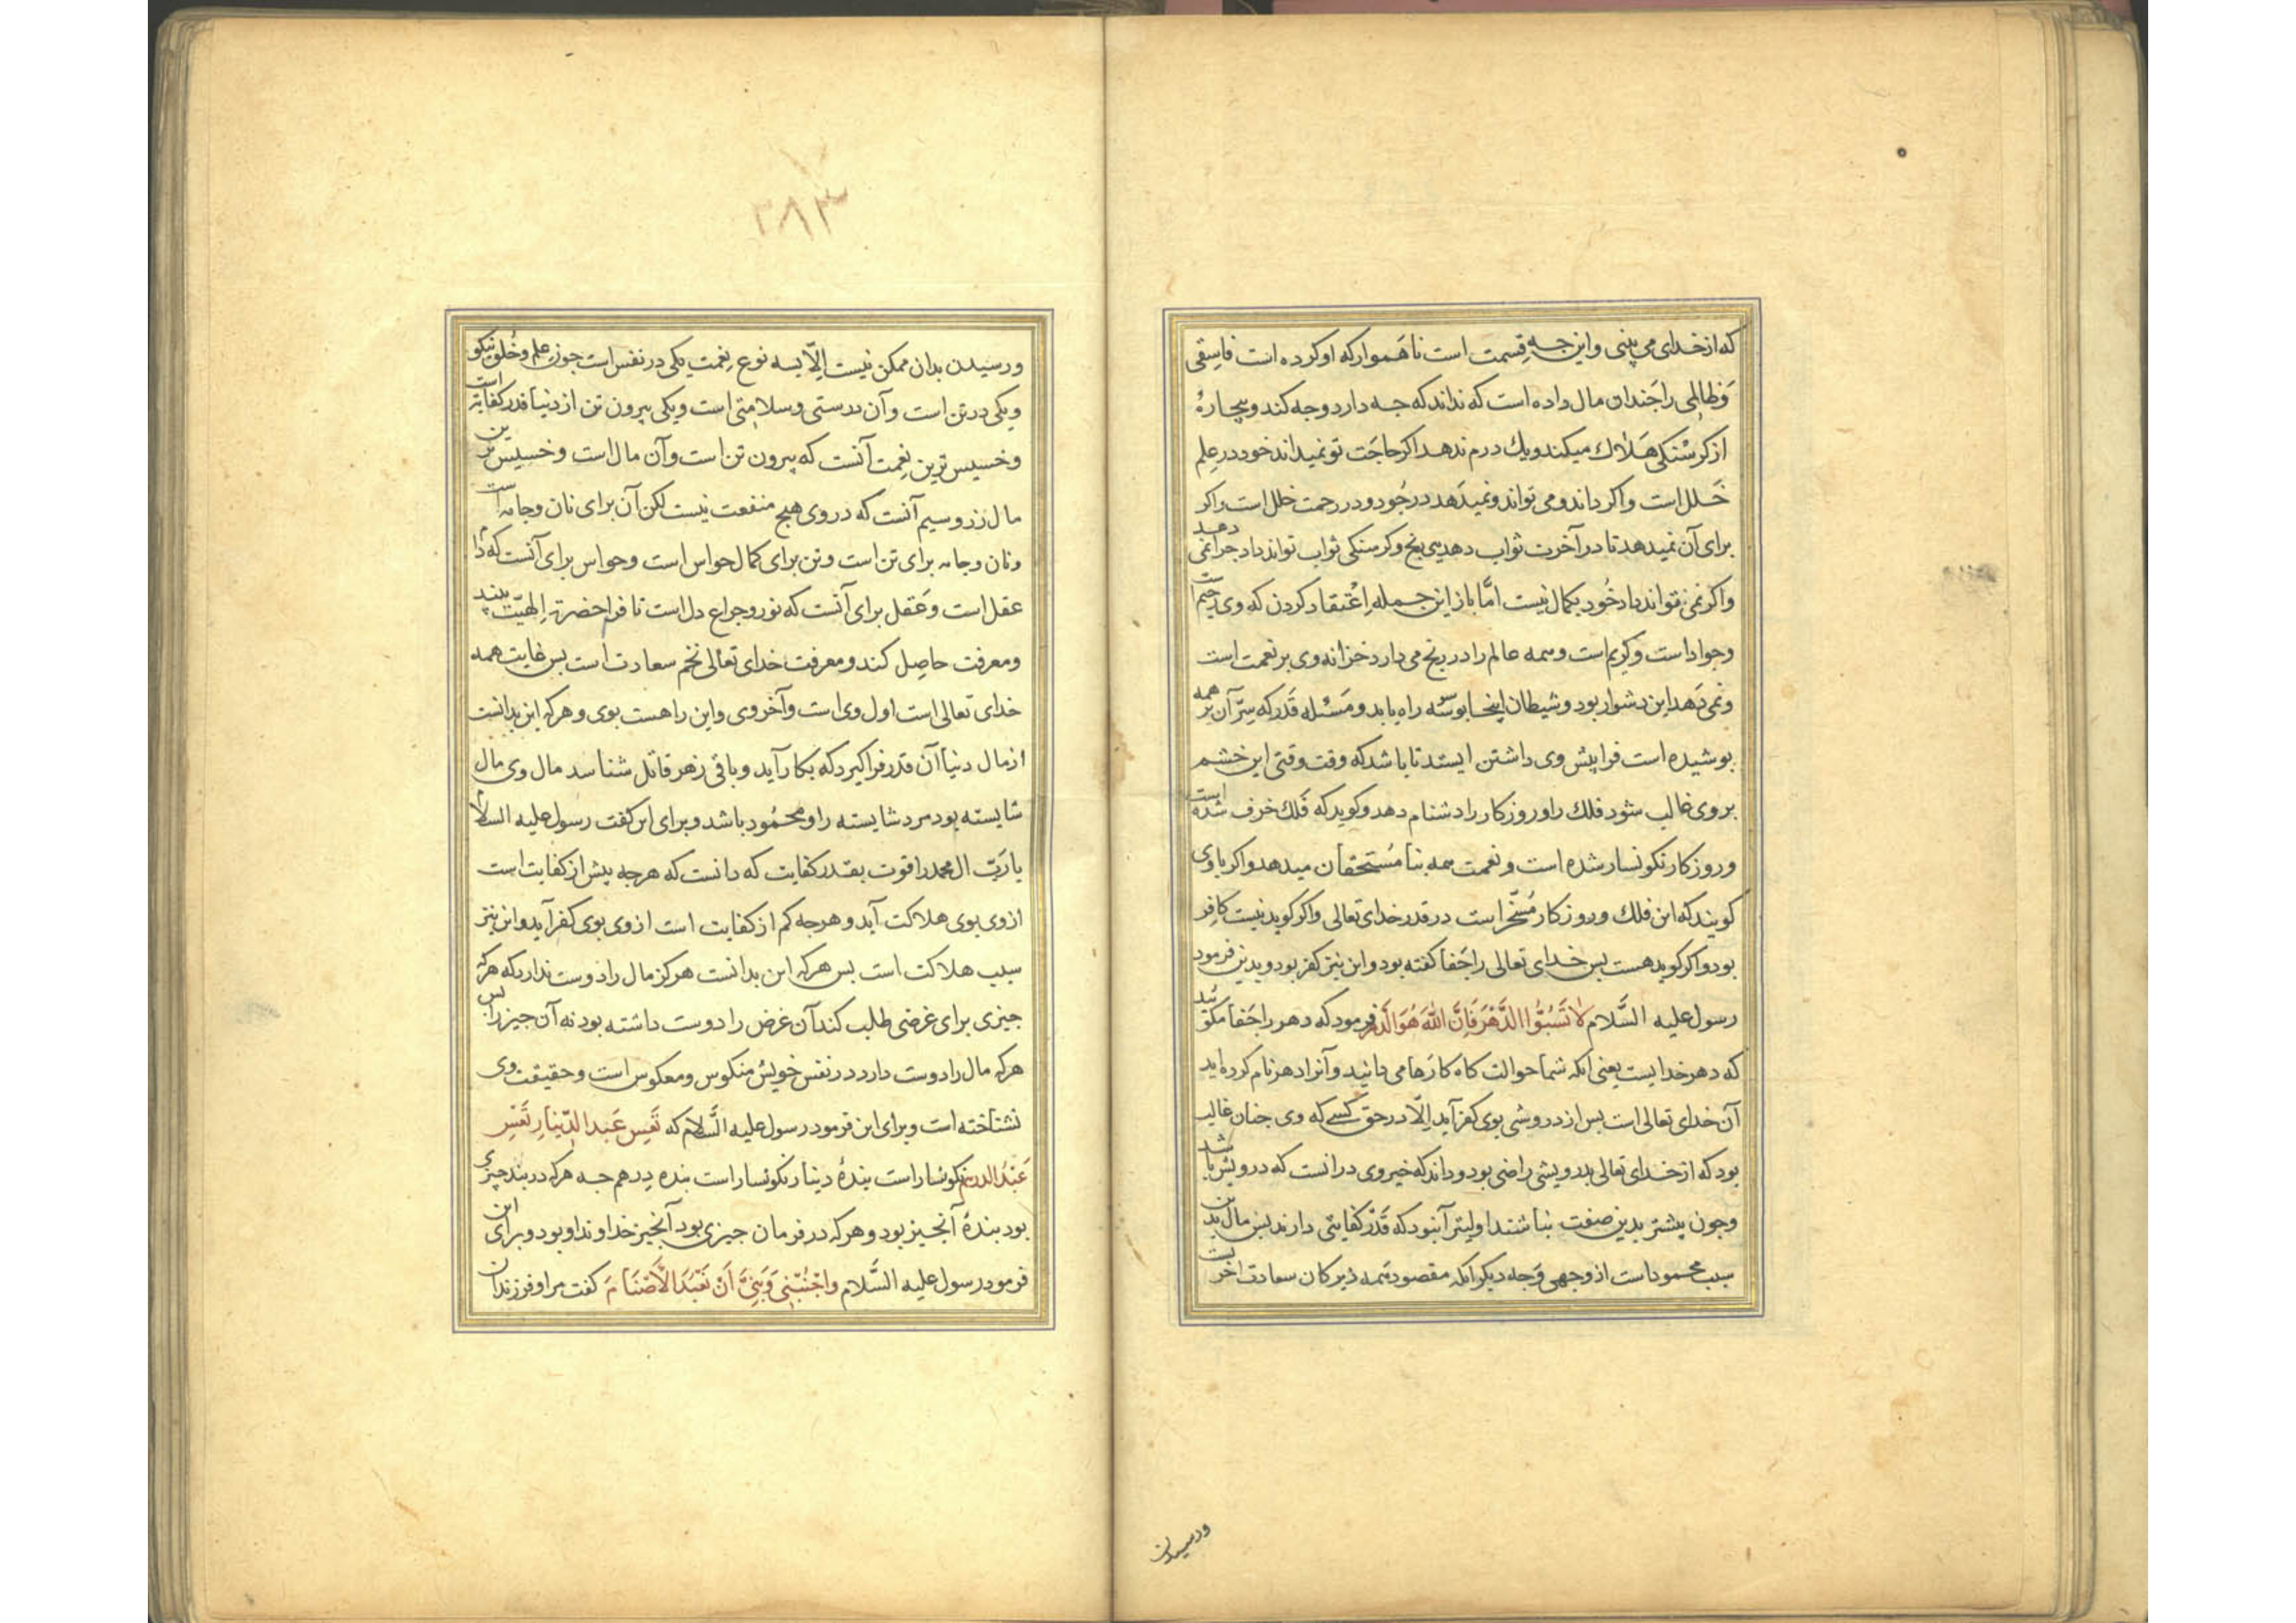 که از خدای می بینی و این جه قسمت است ناهموار که او کرده است فاسقی
و ظالمی را جندان مال داده است که نداند که جه دارد و جه کند و بیچارهٔ
از کرسنکی هلاک میکند و یک درم ندهد اکر حاجت تو نمیداند خود در علم
خلل است و اکر داند و می تواند و نمیدهد در جود و در رحمت خلل است و اکر
برای آن نمیدهد تا در آخرت ثواب دهد بی رنج و کرسنکی ثواب تواند داد جرا نمی دهد
و اکر نمی تواند داد خود بکمال نیست امّا باز این جمله اعتقاد کردن که وی رحیم است
و جواد است و کریم است و همه عالم را در رنج می دارد خزانه وی بر نعمت است
و نمی دهد این دشوار بود و شیطان اینجا بوسوسه راه یابد و مسئله قدر که سرّ آن بر همه
بوشیده است فرا پیش وی داشتن ایستد تا باشد که وقت وقتی این خشم
بر وی غالب شود فلک را و روزکار را دشنام دهد و کوید که فلک خرف شده است
و روزکار نکونسار شده است و نعمت همه بنا مستحقان میدهد و اکر با وی
کویند که این فلک و روزکار مسخّر است در قدر خدای تعالی و اکر کوید نیست کافر
بود و اکر کوید هست بس خدای تعالی را جفا کفته بود و این نیز کفر بود و بدین فرمود
رسول علیه السّلام لا تسبّوا الدّهر فانّ الله هو الدّهر فرمود که دهر را جفا مکوئید
که دهر خدایست یعنی آنکه شما حوالت کاه کارها می دانید و آنرا دهر نام کرده اید
آن خدای تعالی است بس از درویشی بوی کفر آید الّا در حق کسی که وی جنان غالب
بود که از خدای تعالی بدرویشی راضی بود و داند که خیر وی در آنست که درویش باشد
و جون بیشتر بدین صفت نباشند اولیتر آن بود که قدر کفایتی دارند بس مال بدین
سبب محمود است از وجهی وجه دیکر آنکه مقصود همه زیرکان سعادت آخرتست
ورسیدن
۲۸۳
و رسیدن بدان ممکن نیست الّا بسه نوع نعمت یکی در نفس است جون علم و خلق نیکو
و یکی در تن است و آن درستی و سلامتی است و یکی بیرون تن از دنیا قدر کفایت است
و خسیس ترین نعمت آنست که بیرون تن است و آن مال است و خسیس ترین
مال زر و سیم آنست که در وی هیج منفعت نیست لکن آن برای نان و جامه است
و نان و جامه برای تن است و تن برای کمال حواس است و حواس برای آنست که دام
عقل است و عقل برای آنست که نور و جراغ دل است تا فرا حضرت الهیّت بیند
و معرفت حاصل کند و معرفت خدای تعالی تخم سعادت است بس غایت همه
خدای تعالی است اول وی است و آخر وی و این را هست بوی و هرکه این بدانست
از مال دنیا آن قدر فراکیرد که بکار آید و باقی زهر قاتل شناسد مال وی مال
شایسته بود مرد شایسته را و محمود باشد و برای این کفت رسول علیه السلام
یا ربّ ال محمد را قوت بقدر کفایت که دانست که هرجه بیش از کفایت است
از وی بوی هلاکت آید و هرجه کم از کفایت است از وی بوی کفر آید و این نیز
سبب هلاکت است بس هرکه این بدانست هرکز مال را دوست ندارد که هرکه
جیزی برای غرضی طلب کند آن غرض را دوست داشته بود نه آن جیز را بس
هرکه مال را دوست دارد در نفس خویش منکوس و معکوس است و حقیقت وی
نشناخته است و برای این فرمود رسول علیه السّلام که تعس عبد الدّینار تعس
عبد الدرهم نکونسار است بندهٔ دینار نکونسار است بنده درهم جه هرکه در بند جیزی
بود بندهٔ آنجیز بود و هرکه در فرمان جیزی بود آنجیز خداوند او بود و برای این
فرمود رسول علیه السّلام واجنبنی وبنیّ ان نعبد الاصنام کفت مرا و فرزندان